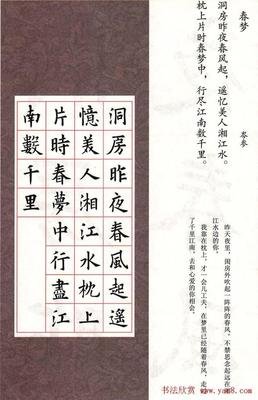 春梦 岑参
洞房昨夜春风起，遥忆美人湘江水。
枕上片时春梦中，行尽江南数千里。
洞房昨夜春風起遙
憶美人湘江水枕上
片時春夢中行盡江
南數千里
昨天夜里，闺房外吹起一阵阵的春风，不禁思念起远在
江水边的你。
我靠在枕上，才一会儿工夫，在梦里已经随着春风，走
了千里江南，去和心爱的你相会。
书法欣赏
www.yac8.com